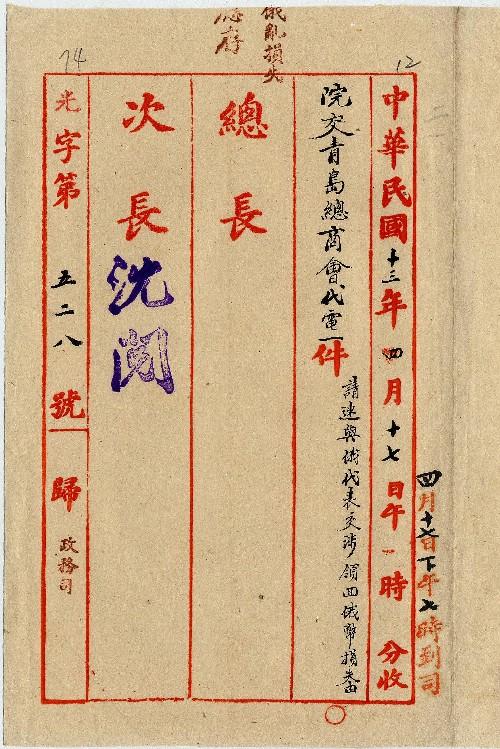 四月十七日下午七時到司
12
中華民國十三年四月十七日午 時 分收
院交青島總商會代電一件
請速與俄代表交涉領回俄幣損失由
總長
次長
沈閱
光字第五二八號
歸
政務司
俄亂損失
74